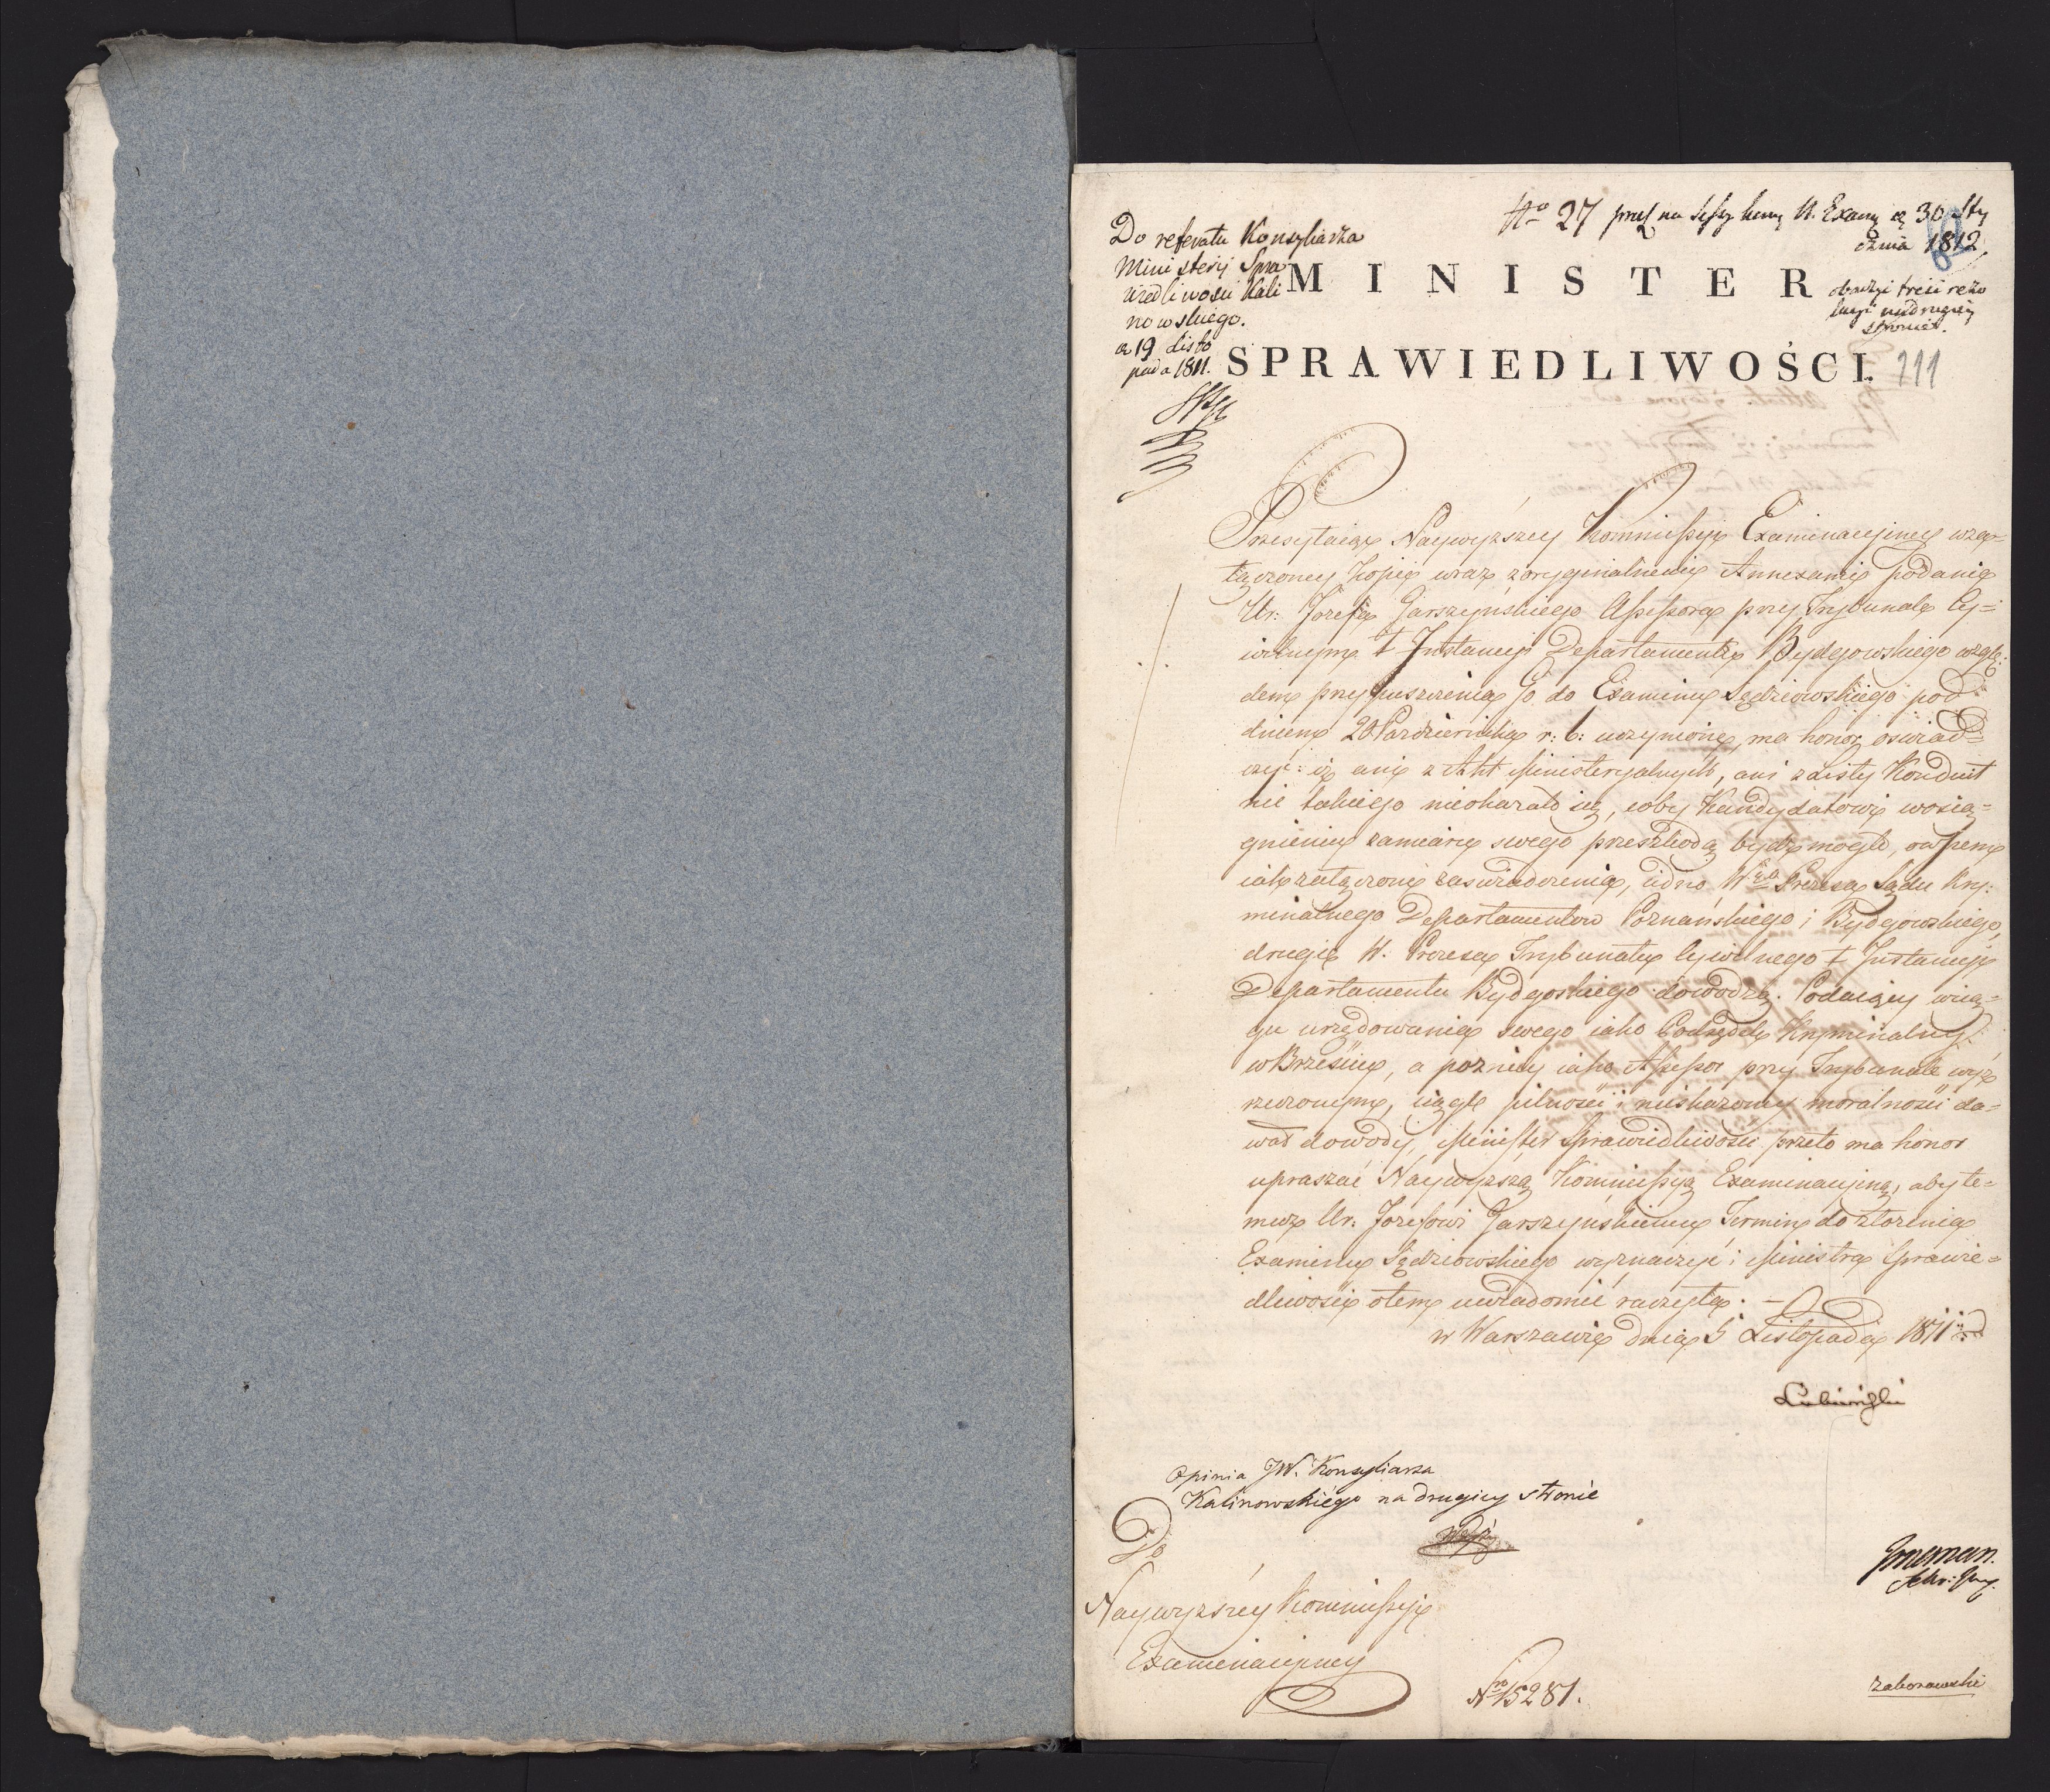 Do referatu Konsyliarza
Ministeryi Spra
wiedliwości Kali
nowskiego.
19 Listo
pada 1811.
No 27 na Sessyi 30 Sty
cznia 1812
treści rezo
lucyi na drugiey
stronie.
MINISTER
SPRAWIEDLIWOŚCI.
111
Przesyłaiąc Naywyższey Kommissyi Examinacyiney wza-
łączoney kopii wraz z oryginalnemi Annexami podanie
Ur: Jozefa Garszyńskiego Assessora przy Trybunale Cy-
wilnym I Instancyi Departamentu Bydgowskiego wzglę-
dem przypuszczenia Go do Examinu Sędziowskiego pod
dniem 20 Pazdziernika r: b: uczynione, ma honor oświad-
czyć: iż ani z Akt Ministeryalnych, ani z Listy Konduit
nic takiego nieokazało się, coby Kandydatowi wosią-
gnieniu zamiaru swego przeszkodą bydź mogło, owszem
iak załączone zaświadczenia, iedno Wgo Prezesa Sądu Kry-
minalnego Departamentow Poznańskiego i Bydgowskiego,
drugie W. Prezesa Trybunału Cywilnego I Instancyi
Departamentu Bydgoskiego dowodzą. Podaiący wcią-
gu urzędowania swego iako Podsędek Kryminalny
w Brześciu, a pozniey iako Assessor przy Trybunale wyż
rzeczonym, ciągłe pilności i nieskazoney moralności da-
wał dowody, Minister Sprawiedliwości przeto ma honor
upraszać Naywyższą Kommissyą Examinacyiną, aby te-
muż Ur: Jozefowi Garszyńskiemu Termin do złożenia
Examinu Sędziowskiego wyznaczyć i Ministra Sprawie-
dliwości otem uwiadomić raczyła.
w Warszawie dnia 5 Listopada 1811
Lubieński
Opinia JW. Konsyliarza
Kalinowskiego na drugiey stronie
Do
Naywyższey Kommissyi
Examinacyiney
No 15281.
Zaborowski